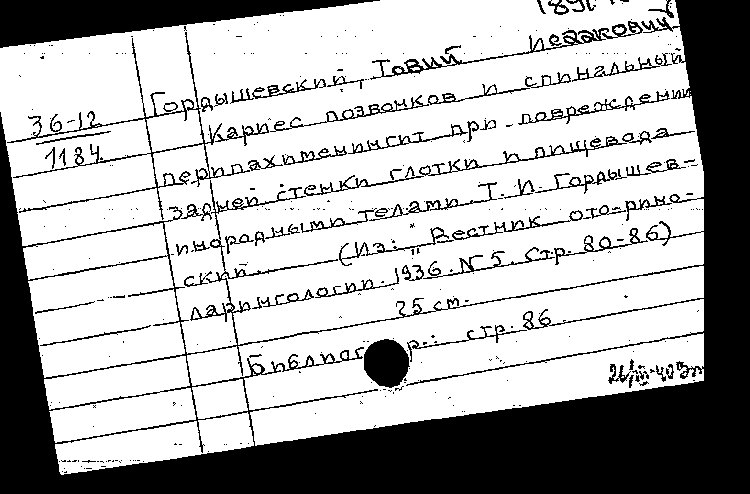 Гордышевский, Товий Исаакович
36-12
1184.
Кариес позвонков и спинальный
перипахименингит при повреждении
задней стенки глотки и пищевода
инородными телами. Т. И. Гордышев-
ский. (Из: „Вестник ото-рино-
ларингологии. 1936. N 5. Стр. 80-86)
25 см.
р.: стр. 86